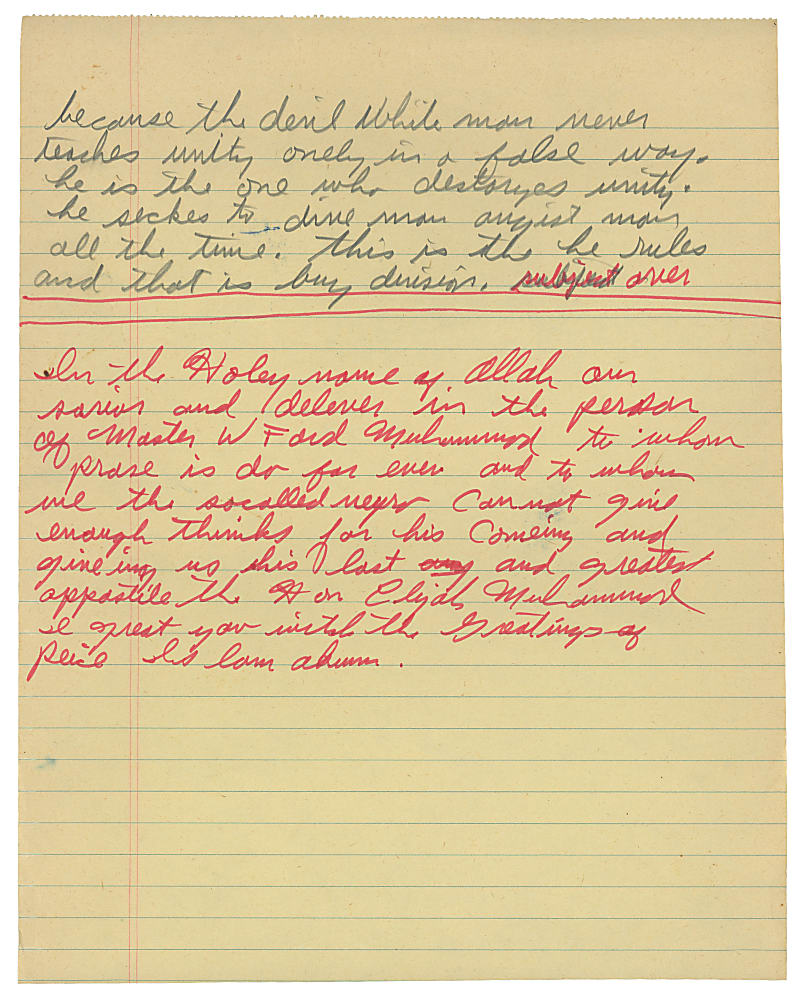 because the devil White man never
teaches unity onely in a false way.
he is the one who destoryes unity.
he seekes to dive man angist man
all the time. this is the he rules
and that is buy division. subject over
In the Holey name of Allah our
savior and delever in the person
of Master W Ford Muhammad to whom
prase is do for ever and to whom
we the socalled negro Cannot give
enough thinks for his Comeing and
giveing us his last and greatest
appostile the Hon Elijah Muhammad
I great you with the Greatings of
Peice As lam alaum.